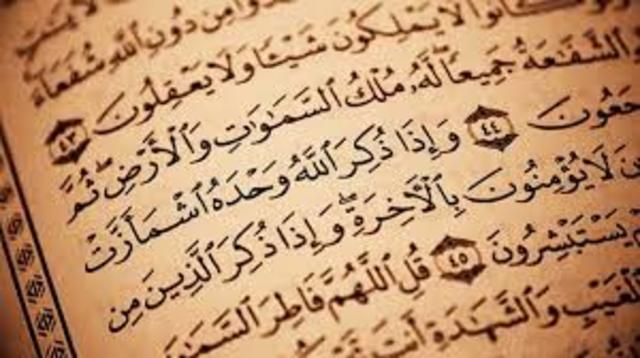 مِن دُونِ ٱللَّهِ شُفَعَآءَ
كَانُوا۟ لَا يَمْلِكُونَ شَيْـًٔا وَلَا يَعْقِلُونَ ٤٣
ٱلشَّفَـٰعَةُ جَمِيعًا لَّهُۥ مُلْكُ ٱلسَّمَـٰوَٰتِ وَٱلْأَرْضِ ثُمَّ
جَعُونَ ٤٤ وَإِذَا ذُكِرَ ٱللَّهُ وَحْدَهُ ٱشْمَأَزَّتْ
لَا يُؤْمِنُونَ بِٱلْـَٔاخِرَةِ وَإِذَا ذُكِرَ ٱلَّذِينَ مِن
يَسْتَبْشِرُونَ ٤٥ قُلِ ٱللَّهُمَّ فَاطِرَ ٱلسَّمَـٰوَٰ
ٱلْغَيْبِ وَٱلشَّهَـٰدَةِ أَنتَ